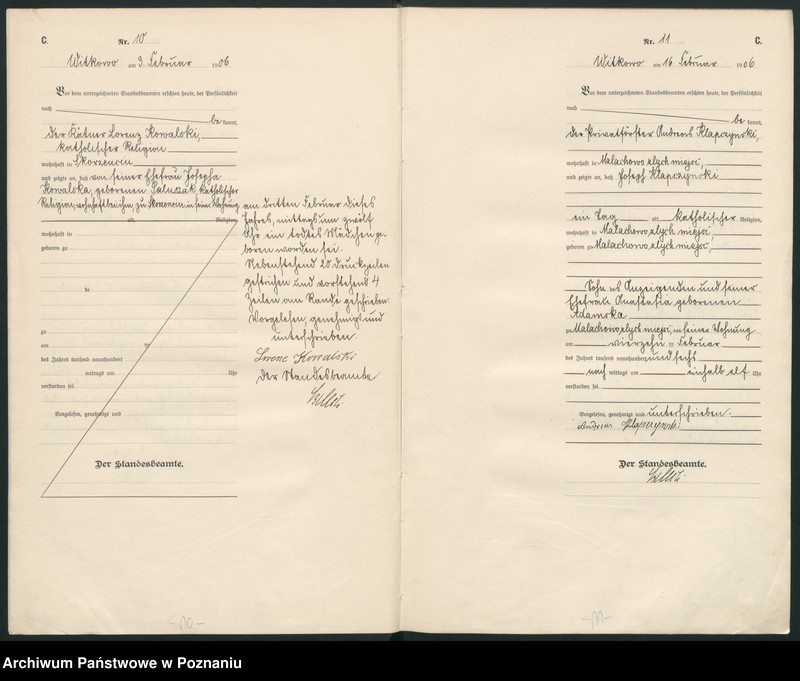 C.
Nr. 10
Witkowo am 3. Februar 1906
Vor dem unterzeichneten Standesbeamten erschien heute, der Persönlichkeit
nach
be kannt,
der Kätner Lorenz Kowalski,
katholischer Religion
wohnhaft in Skorzencin
und zeigte an, daß von seiner Ehefrau Josepha
Kowalska, geborenen katholischer
Religion, wohnhaft bei ihm, zu Skorzencin in seiner Wohnung
alt, Religion,
wohnhaft in
geboren zu
de
zu
am ten
des Jahres tausend neunhundert
mittags um Uhr
verstorben sei.
Vorgelesen, genehmigt und
Der Standesbeamte.
am dritten Februar dieses
Jahres, mittags um zwölf
Uhr ein todtes Mädchen ge-
boren worden sei.
Nebenstehend 20 Druckzeilen
gestrichen und vorstehend 4
Zeilen am Rande geschrieben.
Vorgelesen, genehmigt und
unterschrieben.
Lorenc Kowalski
Der Standesbeamte
-10-
Nr. 11
C.
Witkowo am 16 Februar 1906
Vor dem unterzeichneten Standesbeamten erschien heute, der Persönlichkeit
nach
be kannt,
der Privatförster Andreas Klapczynski,
wohnhaft in Malachowo zlych miejsc,
und zeigte an, daß Joseph Klapczynski
ein Tag alt, katholischer Religion,
wohnhaft in Malachowo zlych miejsc,
geboren zu Malachowo zlych miejsc,
Sohn des Anzeigenden und seiner
Ehefrau Anastasia geborenen
Adamska
zu Malachowo zlych miejsc, in seiner Wohnung
am vierzehn ten Februar
des Jahres tausend neunhundert und sechs
nach mittags um einhalb elf Uhr
verstorben sei.
Vorgelesen, genehmigt und unterschrieben.
Andreas Klapczynski
Der Standesbeamte.
-11-
Archiwum Państwowe w Poznaniu